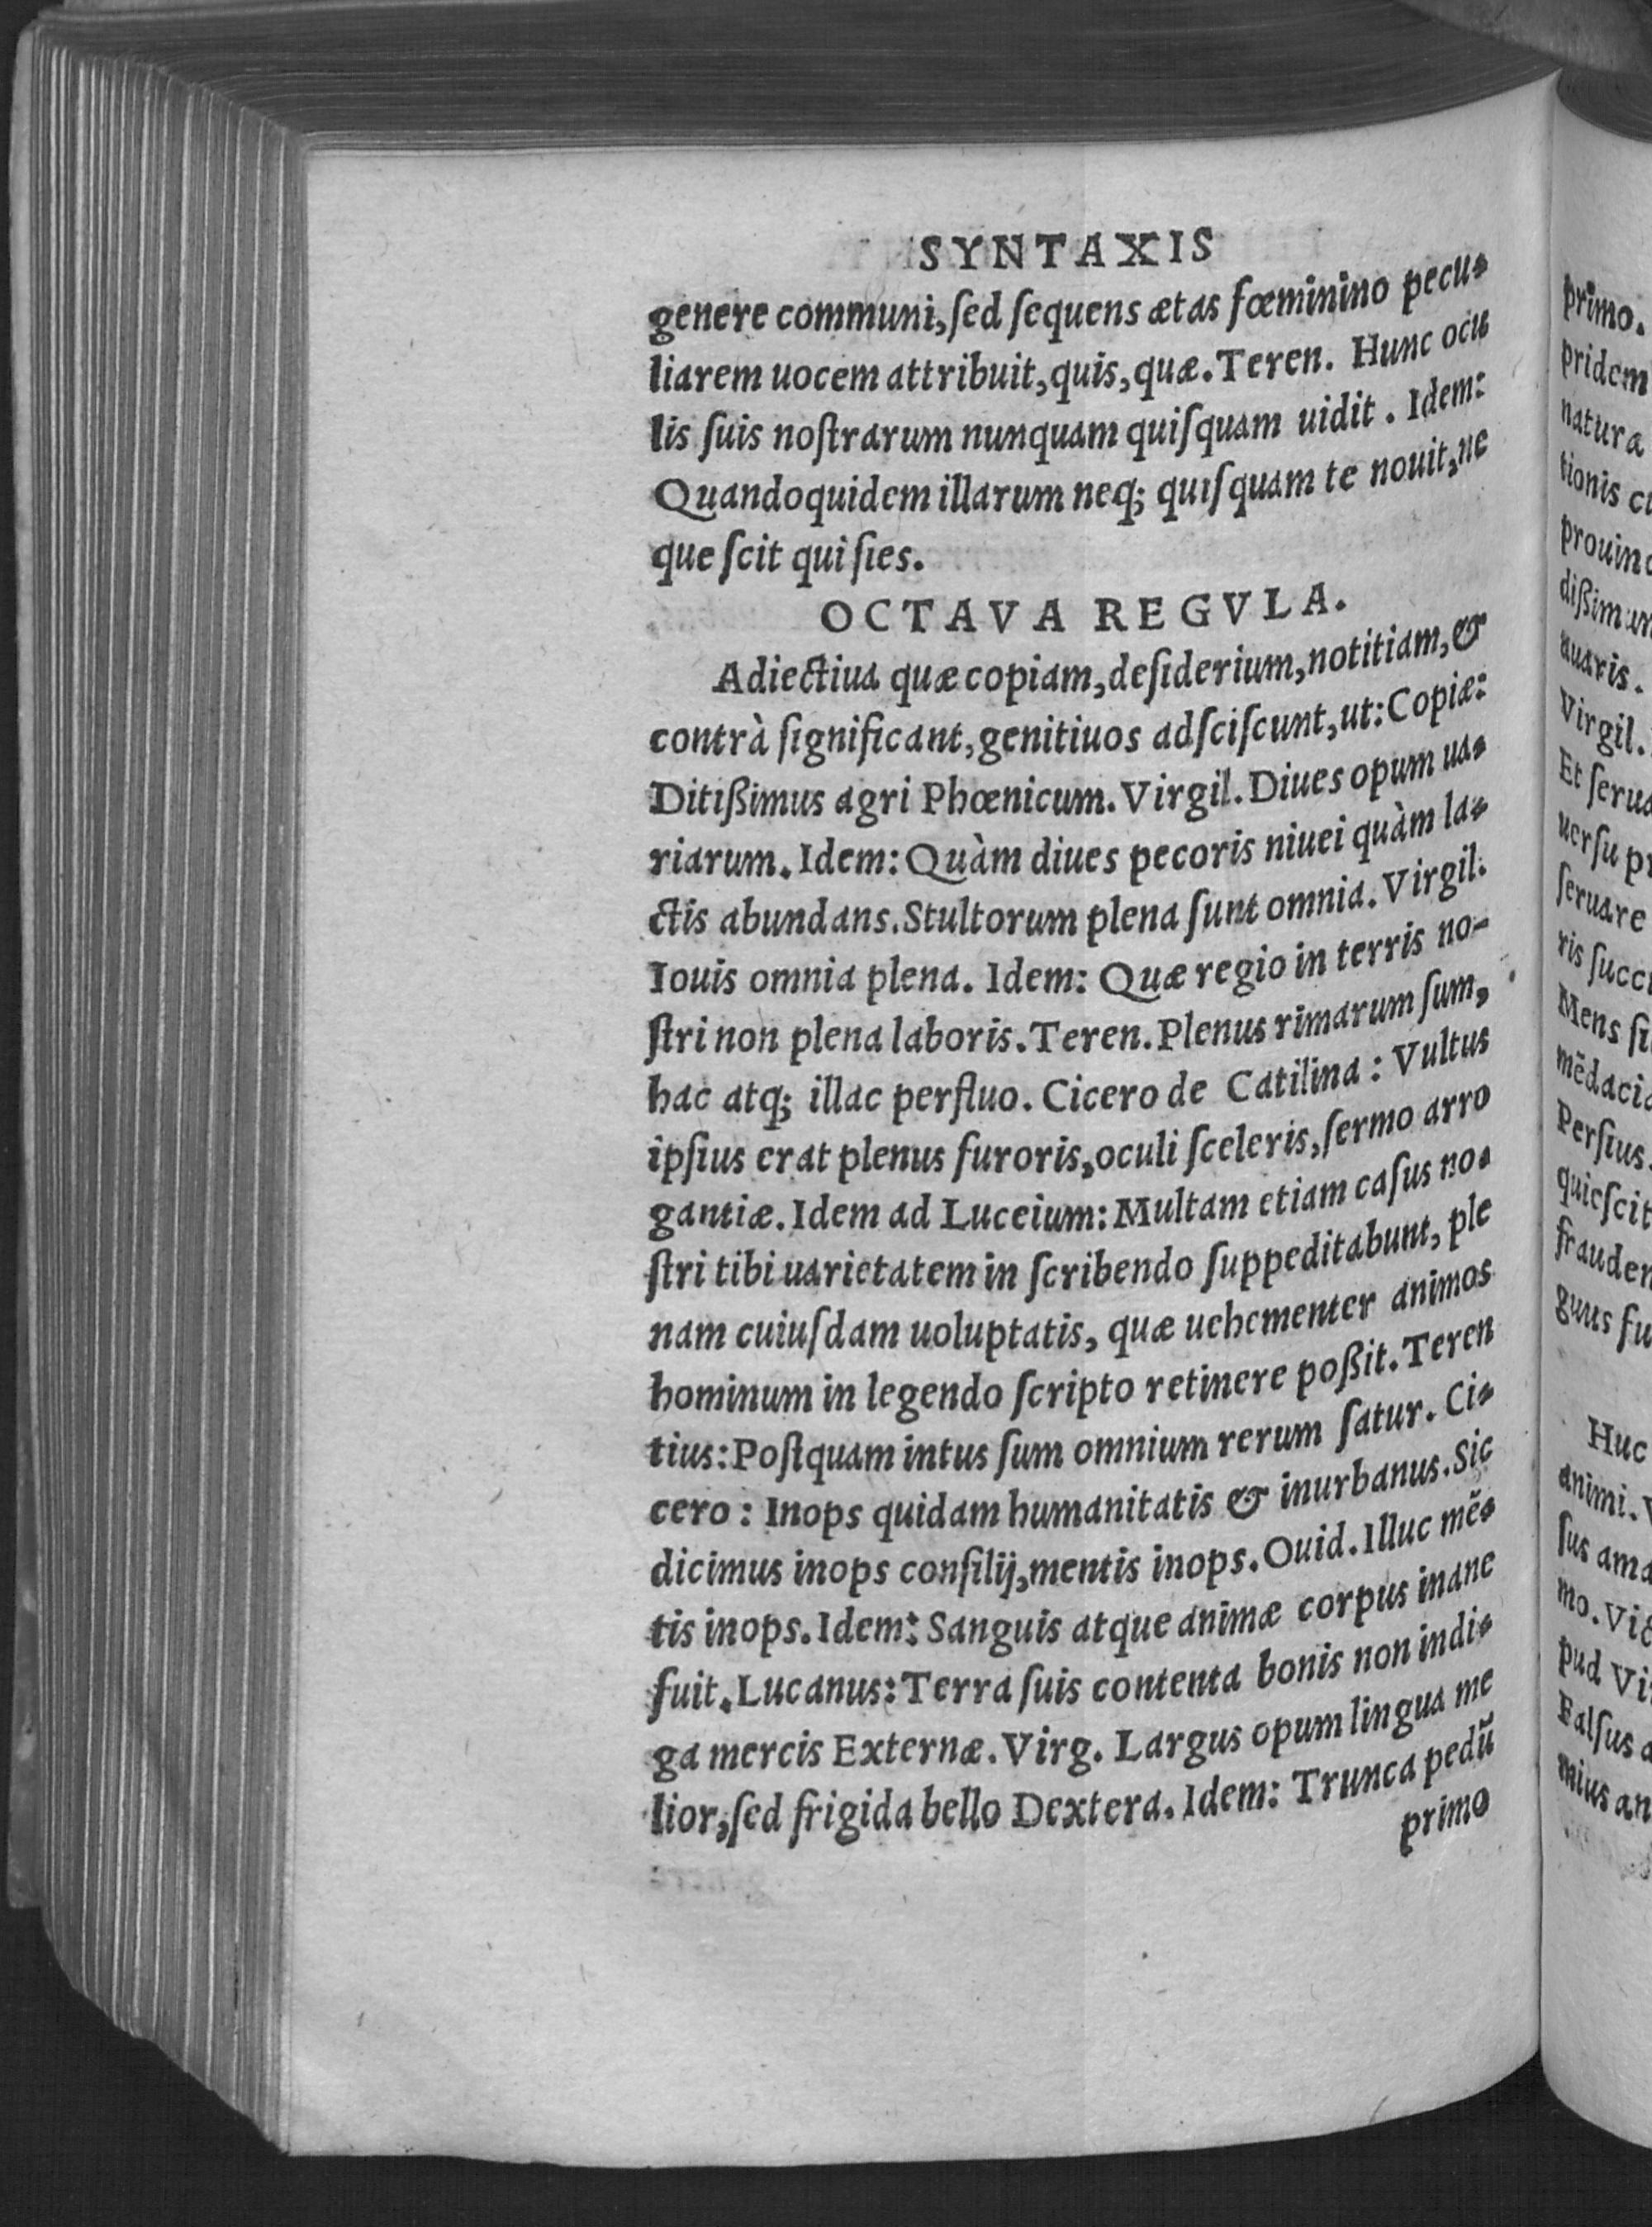 SYNTAXIS
genere communi, ſed ſequens ætas fœminino pecu-
liarem uocem attribuit, quis, quæ. Teren. Hunc ocu
lis ſuis noſtrarum nunquam quiſquam uidit. Idem:
Quandoquidem illarum neq; quiſquam te nouit, ne
que ſcit qui ſies.
OCTAVA REGVLA.
Adiectiua quæ copiam, deſiderium, notitiam, &
contrà ſignificant, genitiuos adſciſcunt, ut: Copiæ:
Ditißimus agri Phœnicum. Virgil. Diues opum ua-
riarum. Idem: Quàm diues pecoris niuei quàm la-
ctis abundans. Stultorum plena ſunt omnia. Virgil.
Iouis omnia plena. Idem: Quæ regio in terris no-
ſtri non plena laboris. Teren. Plenus rimarum ſum,
hac atq; illac perfluo. Cicero de Catilina: Vultus
ipſius erat plenus furoris, oculi ſceleris, ſermo arro
gantiæ. Idem ad Luceium: Multam etiam caſus no-
ſtri tibi uarietatem in ſcribendo ſuppeditabunt, ple
nam cuiuſdam uoluptatis, quæ uehementer animos
hominum in legendo ſcripto retinere poßit. Teren
tius: Poſtquam intus ſum omnium rerum ſatur. Ci-
cero: Inops quidam humanitatis & inurbanus. Sic
dicimus inops conſilij, mentis inops. Ouid. Illuc mẽ-
tis inops. Idem: Sanguis atque animæ corpus inane
fuit. Lucanus: Terra ſuis contenta bonis non indi-
ga mercis Externæ. Virg. Largus opum lingua me
lior, ſed frigida bello Dextera. Idem: Trunca pedũ
primo
primo.
pridem
natura
tionis
dißimum
auaris.
Virgil.
Et
uerſu
ſeruare
ris
Mens
Perſius.
quieſcit
Huc
animi.
ſus
mo.
pud
Falſus